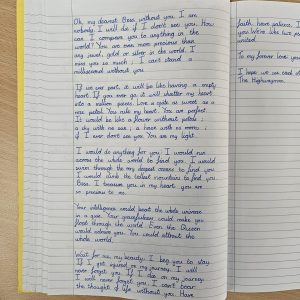 Oh, my dearest Bess, without you I am
nobody. I will die if I don't see you. How
can I compare you to anything in the
world? You are even more precious than
any jewel, gold or silver in the world. I
miss you so much; I can't stand a
millisecond without you.
If we ever part, it will be like having a empty
heart. If you ever go it will shatter my heart
into a million pieces. Love is quite as sweet as a
rose petal. You rule my heart. You are perfect.
It would be like a flower without petals;
a sky with no sun; a house with no room;
if I ever don't see you. You are my light.
I would do anything for you. I would run
across the whole world to find you. I would
swim through the most deepest oceans to find you.
I would climb the tallest mountains to find you
Bess. I treasure you in my heart, you are
so precious to me.
Your intelligence could beat the whole universe
in a game. Your gracefulness could make you
float through the world. Even the Queen
would admire you. You could attract the
whole world.
Wait for me, my beauty. I beg you to stay.
If I get injured on my journey, I will
never forget you. If I die on my journey
I will never forget you. I can't bear
the thought of life without you. Have
faith, have patience,
you. We're like two pe
united.
To my forever love yo
I hope we see each o
The Highwayman